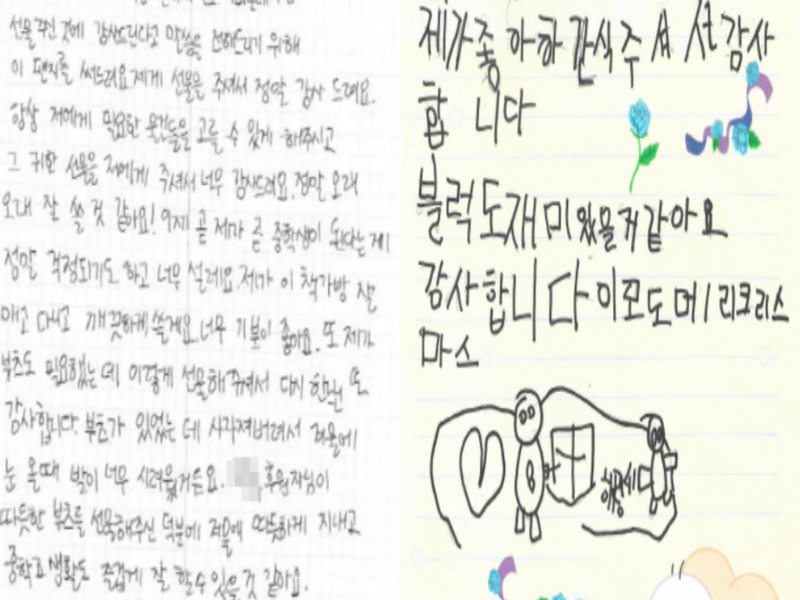 선물주신 것에 감사드린다고 말씀을 전해드리기 위해
이 편지를 써드려요. 제게 선물을 주셔서 정말 감사 드려요.
항상 저에게 필요한 물건들을 고를 수 있게 해주시고
그 귀한 선물을 저에게 주셔서 너무 감사드려요. 정말 오래
오래 잘 쓸 것 같아요! 이제 곧 제가 곧 중학생이 된다는게
정말 걱정되기도 하고 너무 설레요. 제가 이 책가방 잘
매고 다니고 깨끗하게 쓸게요. 너무 기분이 좋아요. 또 제가
부츠도 필요했는데 이렇게 선물해주셔서 다시 한번 또
감사합니다. 부츠가 있었는데 사라져버려서 겨울에
눈 올때 발이 너무 시려웠거든요. 후원자님이
따뜻한 부츠를 선물해주신 덕분에 겨울에 따듯하게 지내고
중학교 생활도 즐겁게 잘 할 수 있을 것 같아요.
제가좋아하간식주셔서감사
합니다
블럭도재미있을거같아요
감사합니다이모도메리크리스
마스